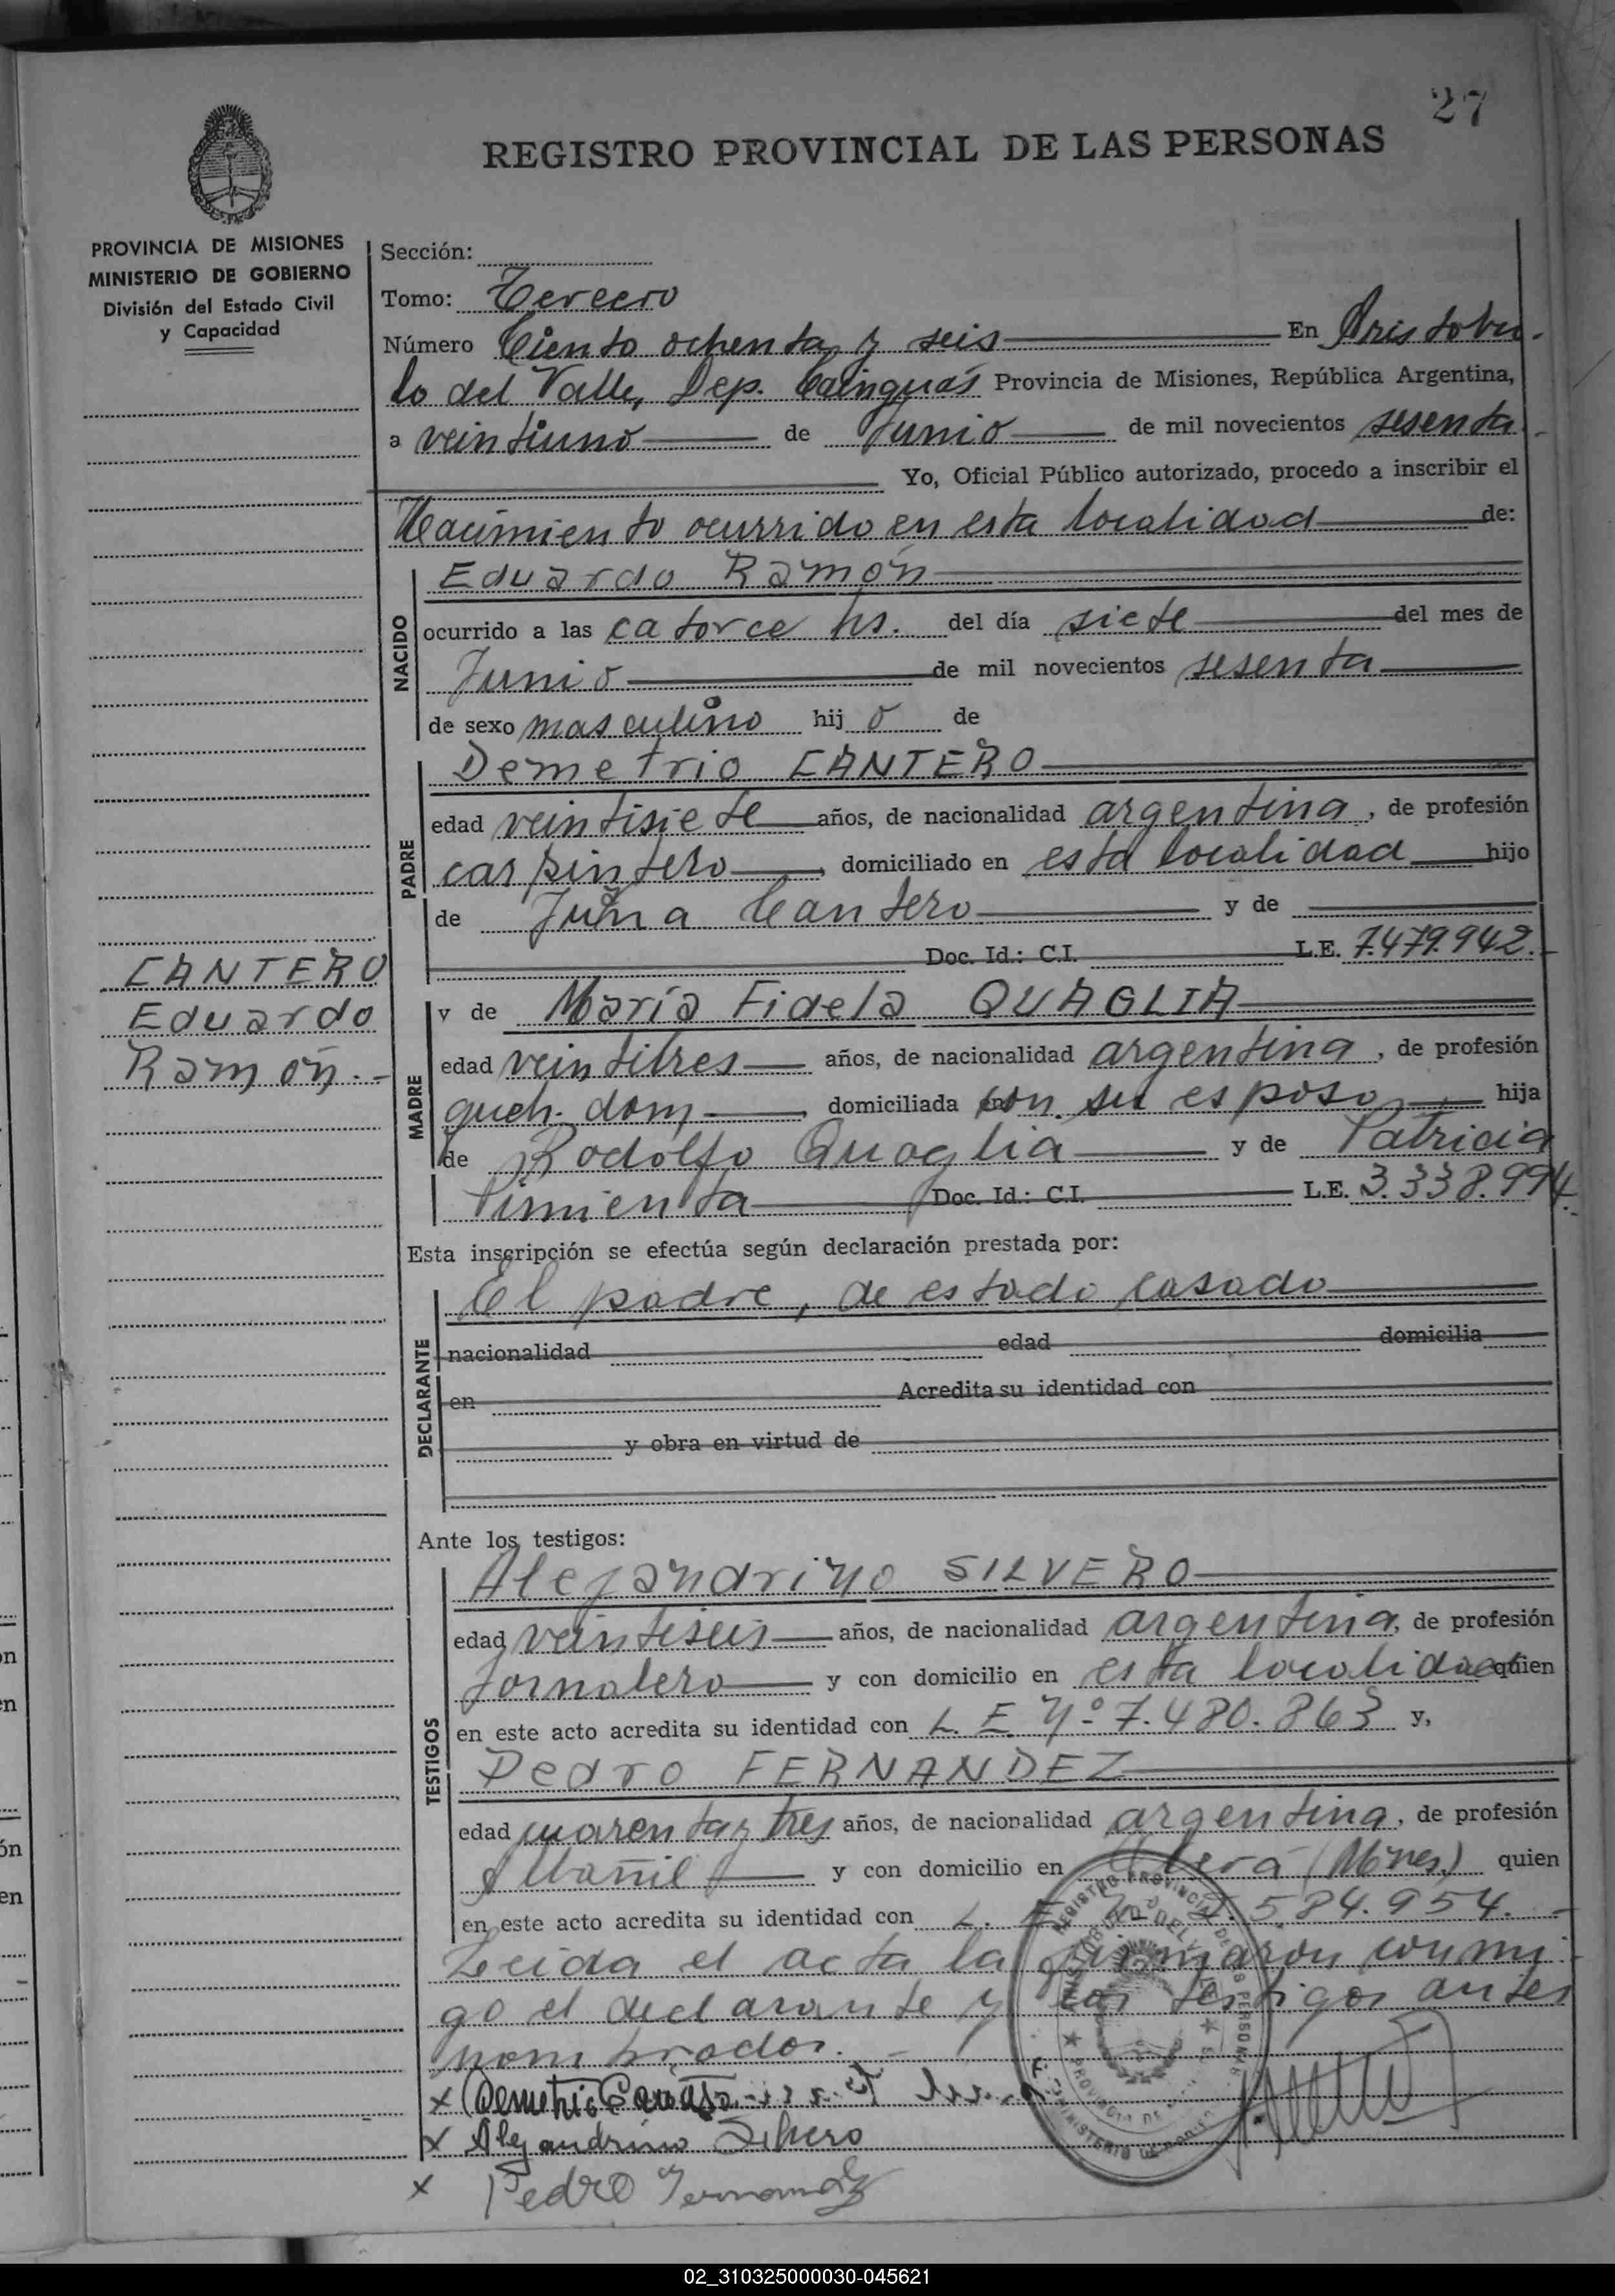 27
REGISTRO PROVINCIAL DE LAS PERSONAS
PROVINCIA DE MISIONES
MINISTERIO DE GOBIERNO
División del Estado Civil
y Capacidad
Sección:
Tomo: Tercero
Número Ciento ochenta y seis En Aristobu-
lo del Valle, Dep. Cainguás Provincia de Misiones, República Argentina,
a veintiuno de Junio de mil novecientos sesenta.-
Yo, Oficial Público autorizado, procedo a inscribir el
Nacimiento ocurrido en esta localidad de:
NACIDO
Eduardo Ramón
ocurrido a las catorce hs. del día siete del mes de
Junio de mil novecientos sesenta
de sexo masculino hijo de
PADRE
Demetrio CANTERO
edad veintisiete años, de nacionalidad argentina, de profesión
carpintero, domiciliado en esta localidad hijo
de Cantero y de
Doc. Id.: C.I. L.E. 7.479.942.-
CANTERO
Eduardo
Ramón.-
MADRE
y de María Fidela QUAGLIA
edad veintitres años, de nacionalidad argentina, de profesión
queh. dom., domiciliada en con su esposo, hija
de Rodolfo Quaglia y de Patricia
Pimienta Doc. Id.: C.I. L.E. 3.338.994.-
Esta inscripción se efectúa según declaración prestada por:
DECLARANTE
El padre, de estado casado
nacionalidad edad domicilia
en Acredita su identidad con
y obra en virtud de
Ante los testigos:
TESTIGOS
Alejandrino SILVERO
edad veintiseis años, de nacionalidad argentina, de profesión
Jornalero y con domicilio en esta localidad quien
en este acto acredita su identidad con L. E. Nº 7.480.863 y,
Pedro FERNANDEZ
edad cuarenta y tres años, de nacionalidad argentina, de profesión
Albañil y con domicilio en Oberá (Mnes.) quien
en este acto acredita su identidad con L. E. 584.954.-
Leida el acta la firmaron conmi-
go el declarante y los testigos antes
nombrados.-
x Demetrio Cantero
x Alejandrino Silvero
x Pedro Fernandez
REGISTRO PROVINCIAL DE LAS PERSONAS
02_310325000030-045621